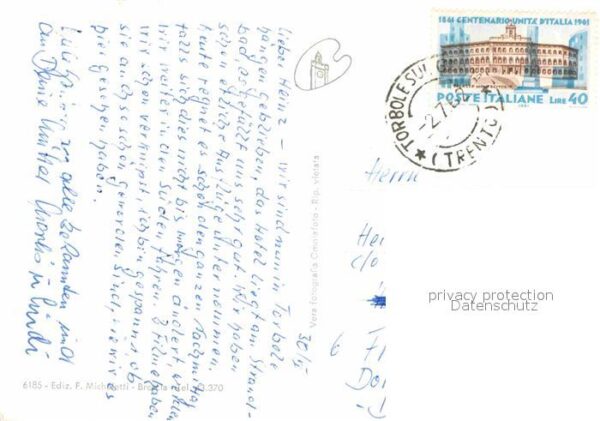 1861 CENTENARIO UNITÀ D'ITALIA 1961
POSTE ITALIANE LIRE 40
TORBOLE SUL
(TRENTO)
30/V
Lieber Heinz – wir sind nun in Torbole
hängen geblieben, das Hotel liegt am Strand-
bad, es gefällt uns sehr gut. Wir haben
schon etliche Ausflüge unternommen,
heute regnet es schon den ganzen Nachmittag
falls sich dies nicht bis morgen ändert, wollen
wir weiter in den Süden fahren. 3 Filme haben
wir schon verknipst, ich bin gespannt ob
sie auch so schön geworden sind, wie wir es
hier gesehen haben.
Liebe Grüße an alle Bekannten und
an Deine Mutter
Vera fotografia Omniafoto - Rip. vietata
6185 - Ediz. F.
Herrn
c/o
6
privacy protection
Datenschutz